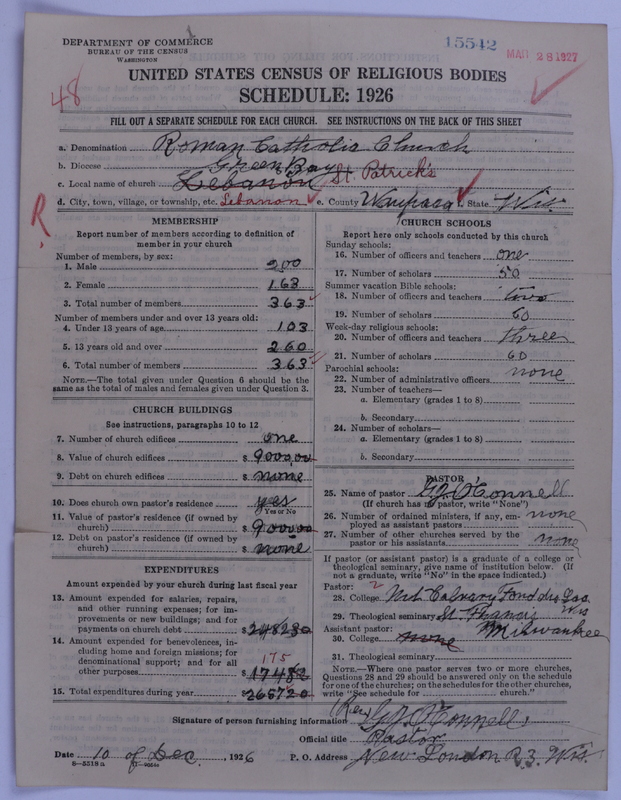 DEPARTMENT OF COMMERCE
BUREAU OF THE CENSUS
WASHINGTON
15542
MAR 28 1927
48
UNITED STATES CENSUS OF RELIGIOUS BODIES
SCHEDULE: 1926
FILL OUT A SEPARATE SCHEDULE FOR EACH CHURCH. SEE INSTRUCTIONS ON THE BACK OF THIS SHEET
a. Denomination Roman Catholic Church
b. Diocese Green Bay
c. Local name of church Lebanon St Patrick's
d. City, town, village, or township, etc. Lebanon e. County Waupaca f. State Wis.
R
MEMBERSHIP
Report number of members according to definition of
member in your church
Number of members, by sex:
1. Male 200
2. Female 163
3. Total number of members 363
Number of members under and over 13 years old:
4. Under 13 years of age 103
5. 13 years old and over 260
6. Total number of members 363
NOTE.—The total given under Question 6 should be
same as the total of males and females given under Question 3.
CHURCH BUILDINGS
See instructions, paragraphs 10 to 12
7. Number of church edifices one
8. Value of church edifices $ 9000,00
9. Debt on church edifices $ none
10. Does church own pastor's residence yes
Yes or No
11. Value of pastor's residence (if owned by
church) $ 900000
12. Debt on pastor's residence (if owned by
church) $ none
EXPENDITURES
Amount expended by your church during last fiscal year
13. Amount expended for salaries, repairs,
and other running expenses; for im-
provements or new buildings; and for
payments on church debt $ 248230
14. Amount expended for benevolences, in-
cluding home and foreign missions; for
denominational support; and for all
other purposes 175
$ 17482
15. Total expenditures during year $ 265720
CHURCH SCHOOLS
Report here only schools conducted by this church
Sunday schools:
16. Number of officers and teachers one
17. Number of scholars 50
Summer vacation Bible schools:
18. Number of officers and teachers two
19. Number of scholars 60
Week-day religious schools:
20. Number of officers and teachers three
21. Number of scholars 60
Parochial schools: none
22. Number of administrative officers
23. Number of teachers—
a. Elementary (grades 1 to 8)
b. Secondary
24. Number of scholars—
a. Elementary (grades 1 to 8)
b. Secondary
PASTOR
25. Name of pastor G J O'Connell
(If church has no pastor, write "None")
26. Number of ordained ministers, if any, em-
ployed as assistant pastors none
27. Number of other churches served by the
pastor or his assistants none
If pastor (or assistant pastor) is a graduate of a college or
theological seminary, give name of institution below. (If
not a graduate, write "No" in the space indicated.)
Pastor: 2
28. College Mt. Calvary Fond du Lac Wis
29. Theological seminary St. Francis
Assistant pastor: Milwaukee
30. College none
31. Theological seminary
NOTE.—Where one pastor serves two or more churches,
Questions 28 and 29 should be answered only on the schedule
for one of the churches; on the schedules for the other churches,
write "See schedule for church."
Signature of person furnishing information (Rev) G J O'Connell
Official title Pastor
Date 10 of Dec, 1926 P. O. Address New London R 3, Wis.
8—5518 a